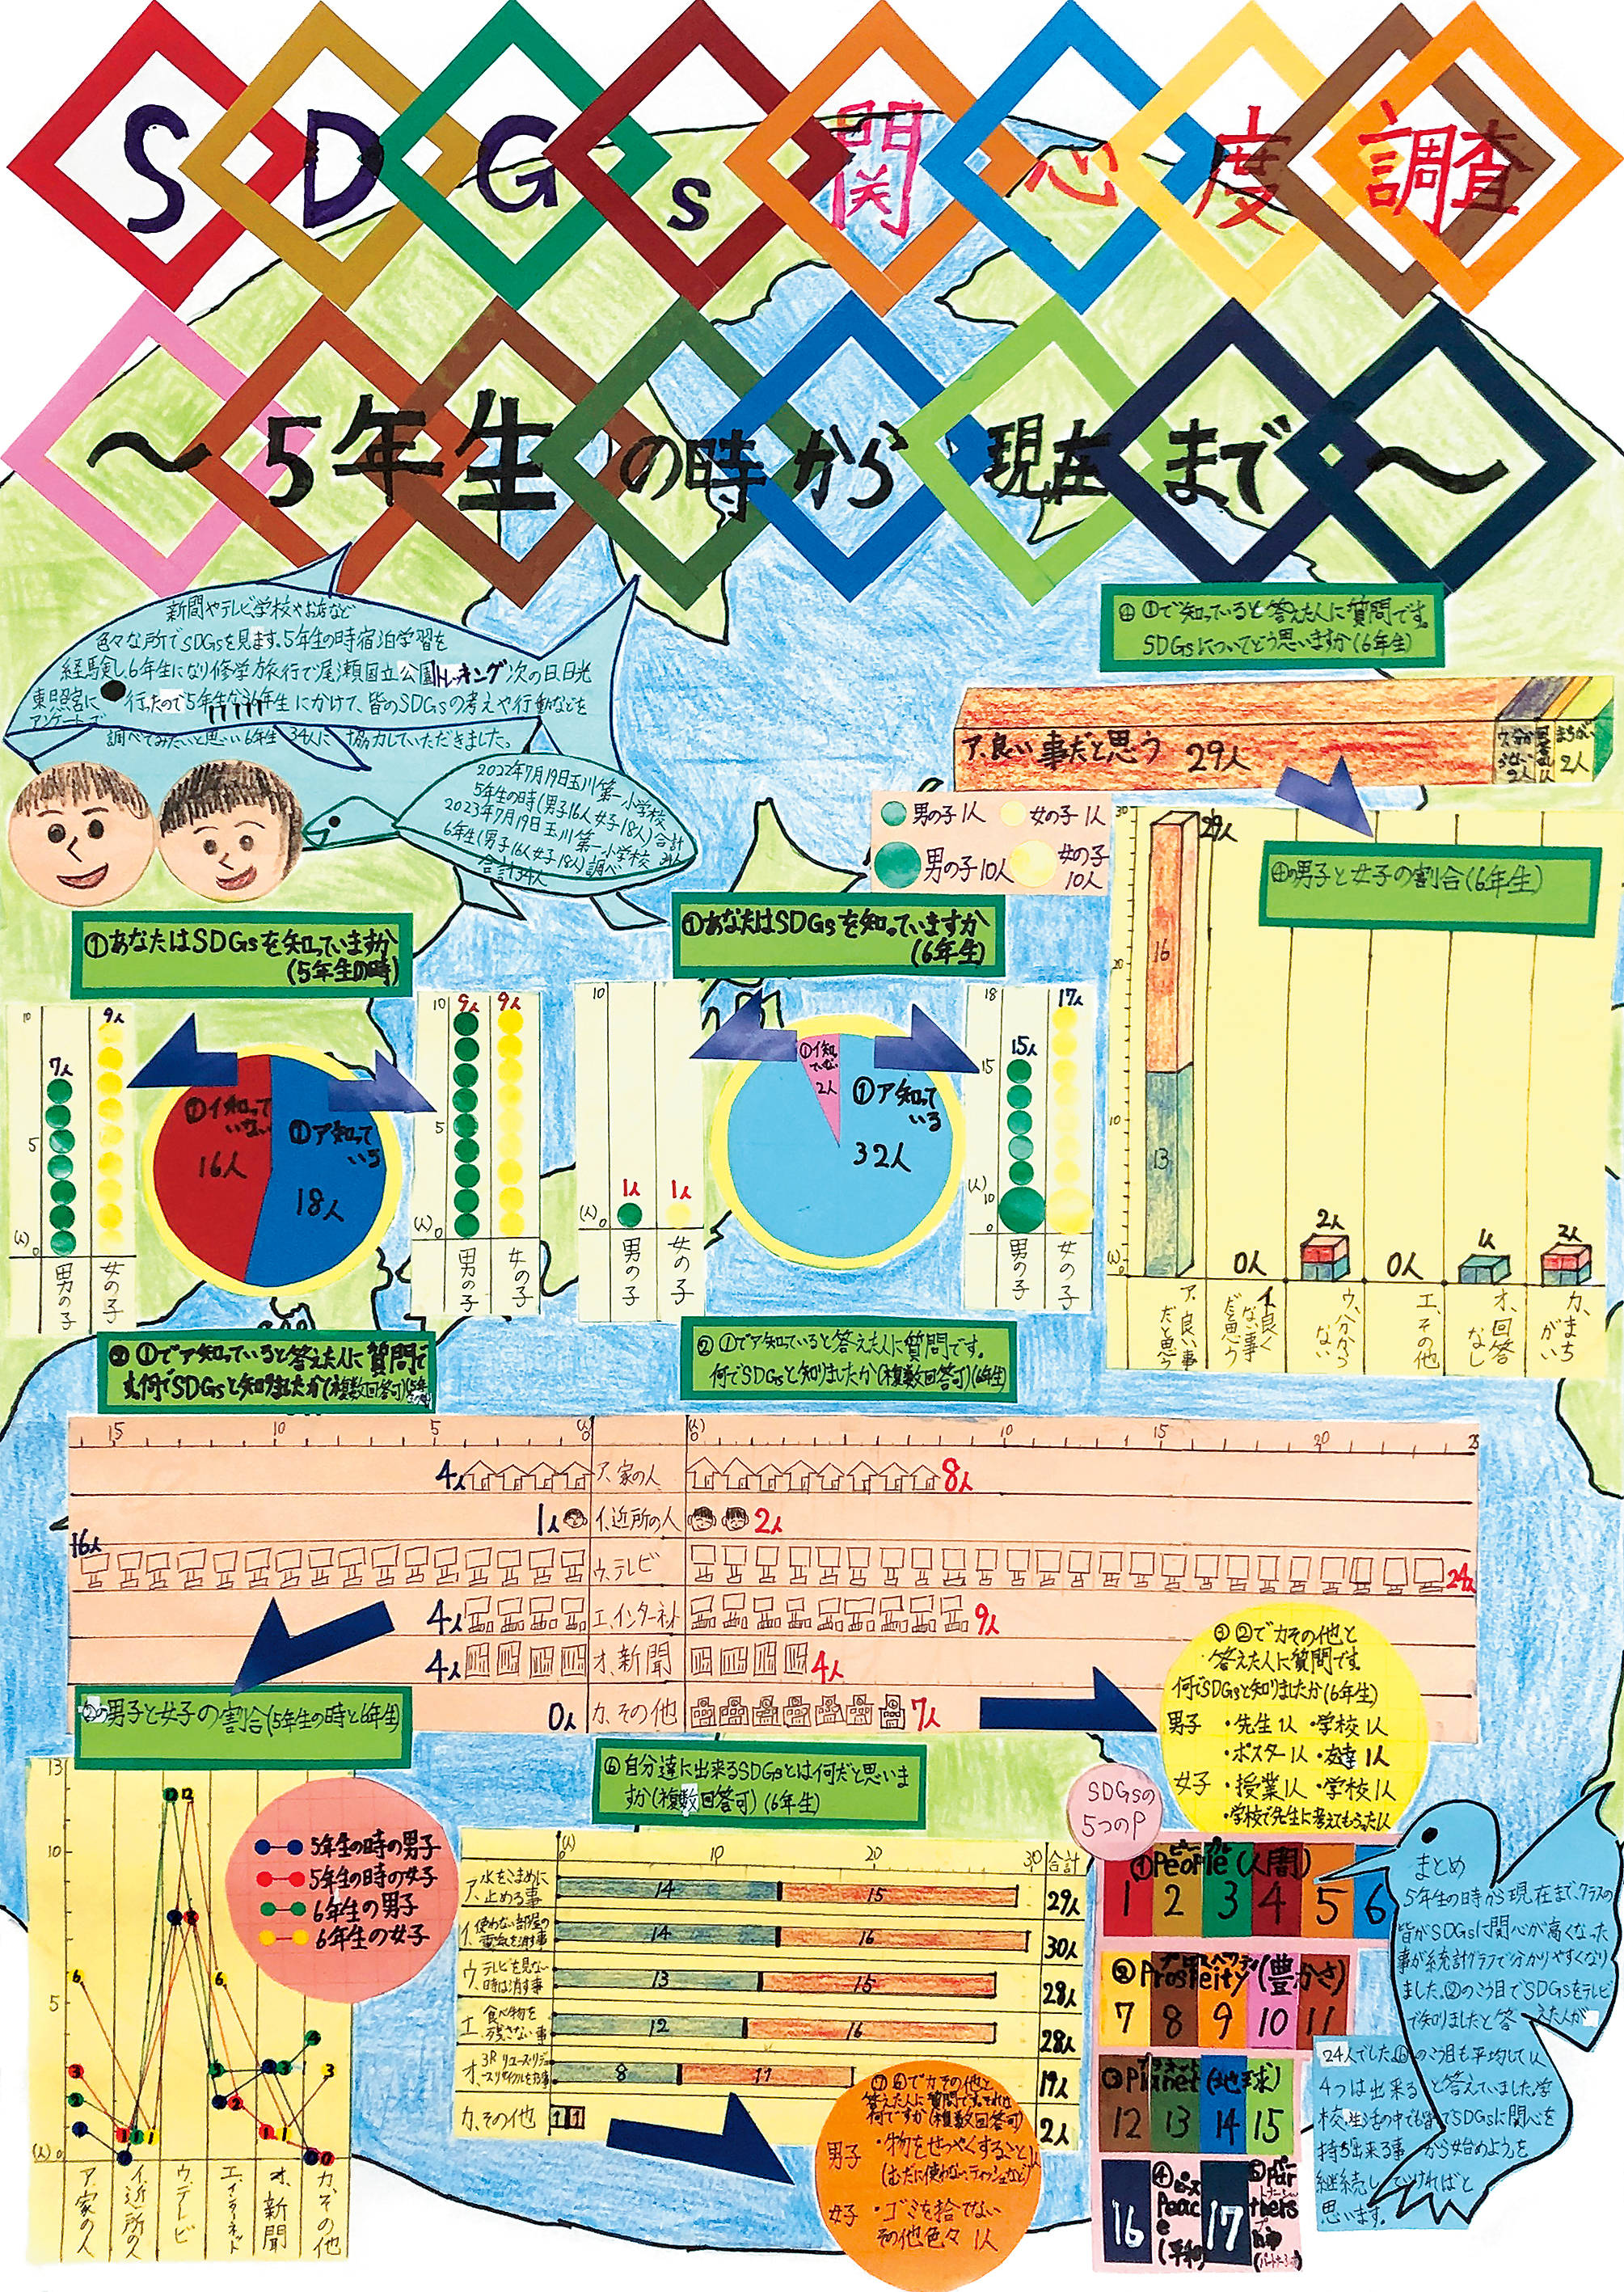 SDGs関心度調査
～5年生の時から現在まで～
新聞やテレビ学校やお店など
色々な所でSDGsを見ます。5年生の時宿泊学習を
経験し、6年生になり修学旅行で尾瀬国立公園トレッキング次の日日光
東照宮に行ったので5年生から6年生にかけて、皆のSDGsの考えや行動などを
アンケートで
調べてみたいと思い6年生34人に協力していただきました。
2022年7月19日玉川第一小学校
5年生の時(男子16人女子18人)合計
34人
2023年7月19日玉川第一小学校
6年生(男子16人女子18人)調べ
合計34人
④①で知っていると答えた人に質問です。
SDGsについてどう思いますか(6年生)
ア、良い事だと思う 29人
2人
1人
まちがい
2人
男の子1人 女の子1人
男の子10人 女の子
10人
④の男子と女子の割合(6年生)
30
20
10
(人)0
29人
16
13
0人
2人
0人
1人
2人
ア、良い事
だと思う
イ、良く
ない事
だと思う
ウ、分から
ない
エ、その他
オ、回答
なし
カ、まち
がい
①あなたはSDGsを知っていますか
(5年生の時)
10
5
(人)0
7人
9人
男の子
女の子
①イ知って
いない
16人
①ア知って
いる
18人
10
5
(人)0
9人
9人
男の子
女の子
①あなたはSDGsを知っていますか
(6年生)
10
(人)0
1人
1人
男の子
女の子
①イ知っ
ていない
2人
①ア知って
いる
32人
18
15
(人)
10
0
15人
17人
男の子
女の子
②①でア知っていると答えた人に質問で
す。何でSDGsと知りましたか(複数回答可)(5年
生の時)
②①でア知っていると答えた人に質問です。
何でSDGsと知りましたか(複数回答可)(6年生)
15 10 5 (人)0 (人)0 5 10 15 20 25
4人 ア、家の人 8人
1人 イ、近所の人 2人
16人 ウ、テレビ 24人
4人 エ、インターネット 9人
4人 オ、新聞 4人
0人 カ、その他 7人
③②でカその他と
答えた人に質問です。
何でSDGsと知りましたか(6年生)
男子 ・先生1人 ・学校1人
・ポスター1人 ・友達1人
女子 ・授業1人 ・学校1人
・学校で先生に考えてもらった1人
②の男子と女子の割合(5年生の時と6年生)
13
10
5
(人)0
12 12
8 8
6 6
3 2 1
4 3
ア、家の人
イ、近所の人
ウ、テレビ
エ、インターネット
オ、新聞
カ、その他
5年生の時の男子
5年生の時の女子
6年生の男子
6年生の女子
⑥自分達に出来るSDGsとは何だと思いま
すか(複数回答可)(6年生)
(人)
0 10 20 30 合計
ア、水をこまめに
止める事 14 15 29人
イ、使わない部屋の
電気を消す事 14 16 30人
ウ、テレビを見ない
時は消す事 13 15 28人
エ、食べ物を
残さない事 12 16 28人
オ、3Rリユース・リデュ
ース・リサイクルをする事 8 11 19人
カ、その他 1 1 2人
⑦⑥でカその他と
答えた人に質問です。それは
何ですか(複数回答可)
男子 ・物をせつやくすること1人
(むだに使わない、ティッシュなど)
女子 ・ゴミを捨てない
その他色々 1人
SDGsの
5つのP
①People(人間)
ピープル
1 2 3 4 5 6
②Prosperity(豊かさ)
7 8 9 10 11
③Planet(地球)
プラネット
12 13 14 15
16
④ピース
Peac
e
(平和)
17
⑤パー
Par
tners
hip
(パートナーシップ)
まとめ
5年生の時から現在まで、クラスの
皆がSDGsに関心が高くなった
事が統計グラフで分かりやすくなり
ました。②のこう目でSDGsをテレビ
で知りましたと答えた人が
24人でした。⑥のこう目も平均して1人
4つは出来ると答えていました。学
校、生活の中でも皆でSDGsに関心を
持ち出来る事から始めようを
継続していければと
思います。